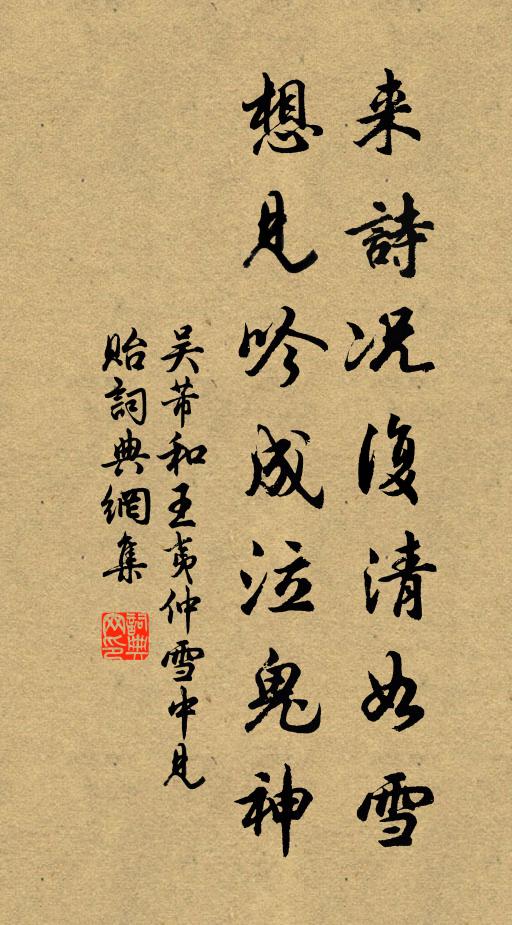 来詩况復清如雪
想見吟成泣鬼神
吴芾和王夷仲雪中見
貽詞典網集
詞典網印